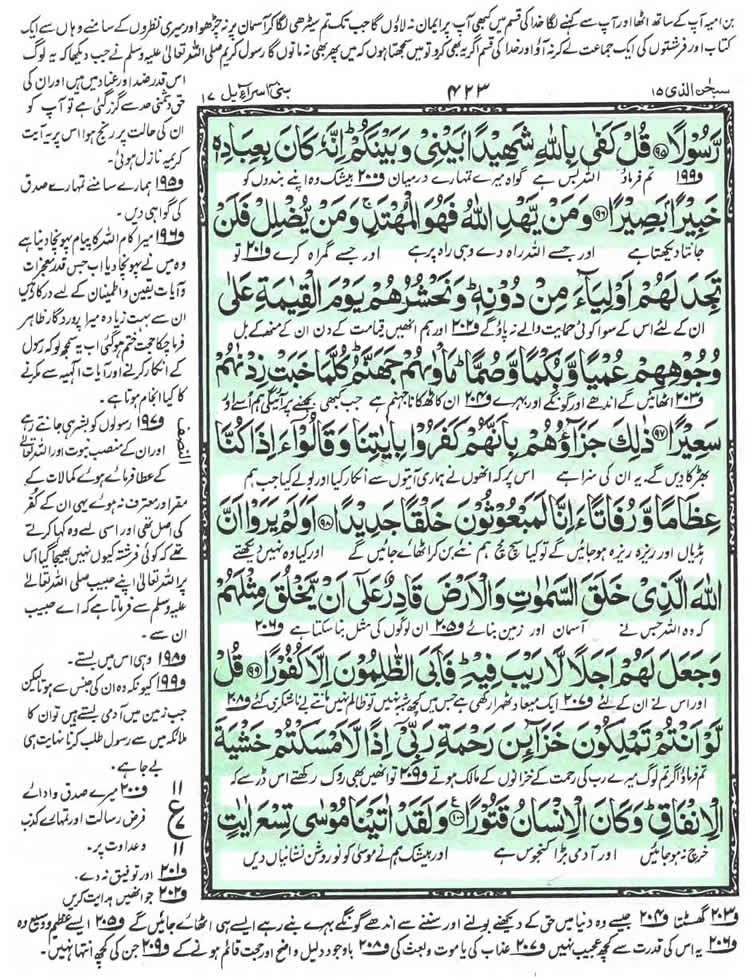 بن امیہ آپ کے ساتھ اٹھا اور آپ سے کہنے لگا خدا کی قسم میں کبھی آپ پر ایمان نہ لاؤں گا جب تک تم سیڑھی لگا کر آسمان پر نہ چڑھو اور میری نظروں کے سامنے وہاں سے ایک
کتاب اور فرشتوں کی ایک جماعت لے کر نہ آؤ اور خدا کی قسم اگر یہ بھی کرو تو میں سمجھتا ہوں کہ میں پھر بھی نہ مانوں گا رسول کریم صلی اللہ تعالیٰ علیہ وسلم نے جب دیکھا کہ یہ لوگ
سبحٰن الذی ۱۵
۴۲۳
بنیٓ اسرآءیل ۱۷
اس قدر ضد اور عناد میں ہیں اور ان کی
حق دشمنی حد سے گزر گئی ہے تو آپ کو
ان کی حالت پر رنج ہوا اس پر یہ آیت
کریمہ نازل ہوئی۔
و۱۹۵ ہمارے سامنے تمہارے صدق
کی گواہی دیں۔
و۱۹۶ میرا کام اللہ کا پیام پہونچا دینا ہے
وہ میں نے پہونچا دیا اب جس قدر معجزات
و آیات یقین و اطمینان کے لیے درکار ہیں
ان سے بہت زیادہ میرا پروردگار ظاہر
فرما چکا حجت ختم ہو گئی اب یہ سمجھ لو کہ رسول
کے انکار کرنے اور آیات الٰہیہ سے مکرنے
کا کیا انجام ہوتا ہے۔
و۱۹۷ رسولوں کو بشر ہی جانتے رہے
اور ان کے منصب نبوت اور اللہ تعالیٰ
کے عطا فرمائے ہوئے کمالات کے
مقر اور معترف نہ ہوئے یہی ان کے کفر
کی اصل تھی اور اسی لیے وہ کہا کرتے
تھے کہ کوئی فرشتہ کیوں نہیں بھیجا گیا اس
پر اللہ تعالیٰ اپنے حبیب صلی اللہ تعالیٰ
علیہ وسلم سے فرماتا ہے کہ اے حبیب
ان سے۔
و۱۹۸ وہی اس میں بستے۔
و۱۹۹ کیونکہ وہ ان کی جنس سے ہوتا لیکن
جب زمین میں آدمی بستے ہیں تو ان کا
ملائکہ میں سے رسول طلب کرنا نہایت ہی
بے جا ہے۔
و۲۰۰ میرے صدق و ادائے
فرض رسالت اور تمہارے کذب
و عداوت پر۔
و۲۰۱ اور توفیق نہ دے۔
و۲۰۲ جو انھیں ہدایت کریں
النصف
۱۱
ع
۷
۱۱
رَّسُوۡلًا ﴿۹۵﴾ قُلۡ کَفٰی بِاللّٰہِ شَہِیۡدًۢا بَیۡنِیۡ وَبَیۡنَکُمۡ ؕ اِنَّہٗ کَانَ بِعِبَادِہٖ
و۱۹۹ تم فرماؤ اللہ بس ہے گواہ میرے تمہارے درمیان و۲۰۰ بیشک وہ اپنے بندوں کو
خَبِیۡرًۢا بَصِیۡرًا ﴿۹۶﴾ وَمَنۡ یَّہۡدِ اللّٰہُ فَہُوَ الۡمُہۡتَدِ ۚ وَمَنۡ یُّضۡلِلۡ فَلَنۡ
جانتا دیکھتا ہے اور جسے اللہ راہ دے وہی راہ پر ہے اور جسے گمراہ کرے و۲۰۱ تو
تَجِدَ لَہُمۡ اَوۡلِیَآءَ مِنۡ دُوۡنِہٖ ؕ وَنَحۡشُرُہُمۡ یَوۡمَ الۡقِیٰمَۃِ عَلٰی
ان کے لئے اس کے سوا کوئی حمایت والے نہ پاؤ گے و۲۰۲ اور ہم انھیں قیامت کے دن ان کے منھ کے بل
وُجُوۡہِہِمۡ عُمۡیًا وَّبُکۡمًا وَّصُمًّا ؕ مَاۡوٰىہُمۡ جَہَنَّمُ ؕ کُلَّمَا خَبَتۡ زِدۡنٰہُمۡ
و۲۰۳ اٹھائیں گے اندھے اور گونگے اور بہرے و۲۰۴ ان کا ٹھکانا جہنم ہے جب کبھی بجھنے پر آئیگی ہم اسے اور
سَعِیۡرًا ﴿۹۷﴾ ذٰلِکَ جَزَآؤُہُمۡ بِاَنَّہُمۡ کَفَرُوۡا بِاٰیٰتِنَا وَقَالُوۡۤا ءَاِذَا کُنَّا
بھڑکا دیں گے۔ یہ ان کی سزا ہے اس پر کہ انھوں نے ہماری آیتوں سے انکار کیا اور بولے کیا جب ہم
عِظَامًا وَّرُفَاتًا ءَاِنَّا لَمَبۡعُوۡثُوۡنَ خَلۡقًا جَدِیۡدًا ﴿۹۸﴾ اَوَلَمۡ یَرَوۡا اَنَّ
ہڈیاں اور ریزہ ریزہ ہو جائیں گے تو کیا سچ مچ ہم نئے بن کر اٹھائے جائیں گے اور کیا وہ نہیں دیکھتے
اللّٰہَ الَّذِیۡ خَلَقَ السَّمٰوٰتِ وَالۡاَرۡضَ قَادِرٌ عَلٰۤی اَنۡ یَّخۡلُقَ مِثۡلَہُمۡ
کہ وہ اللہ جس نے آسمان اور زمین بنائے و۲۰۵ ان لوگوں کی مثل بنا سکتا ہے و۲۰۶
وَجَعَلَ لَہُمۡ اَجَلًا لَّا رَیۡبَ فِیۡہِ ؕ فَاَبَی الظّٰلِمُوۡنَ اِلَّا کُفُوۡرًا ﴿۹۹﴾ قُلۡ
اور اس نے ان کے لئے و۲۰۷ ایک میعاد ٹھہرا رکھی ہے جس میں کچھ شبہ نہیں تو ظالم نہیں مانتے بے ناشکری کئے و۲۰۸
لَّوۡ اَنۡتُمۡ تَمۡلِکُوۡنَ خَزَآئِنَ رَحۡمَۃِ رَبِّیۡۤ اِذًا لَّاَمۡسَکۡتُمۡ خَشۡیَۃَ
تم فرماؤ اگر تم لوگ میرے رب کی رحمت کے خزانوں کے مالک ہوتے و۲۰۹ تو انھیں بھی روک رکھتے اس ڈر سے کہ
الۡاِنۡفَاقِ ؕ وَکَانَ الۡاِنۡسَانُ قَتُوۡرًا ﴿۱۰۰﴾ وَلَقَدۡ اٰتَیۡنَا مُوۡسٰی تِسۡعَ اٰیٰتٍۭ
خرچ نہ ہو جائیں اور آدمی بڑا کنجوس ہے اور بیشک ہم نے موسیٰ کو نو روشن نشانیاں دیں
و۲۰۳ گھسٹتا و۲۰۴ جیسے وہ دنیا میں حق کے دیکھنے بولنے اور سننے سے اندھے گونگے بہرے بنے رہے ایسے ہی اٹھائے جائیں گے و۲۰۵ ایسے عظیم و وسیع وہ
و۲۰۶ یہ اس کی قدرت سے کچھ عجیب نہیں و۲۰۷ عذاب کی یا موت و بعث کی و۲۰۸ باوجود دلیل واضح اور حجت قائم ہونے کے و۲۰۹ جن کی کچھ انتہا نہیں۔